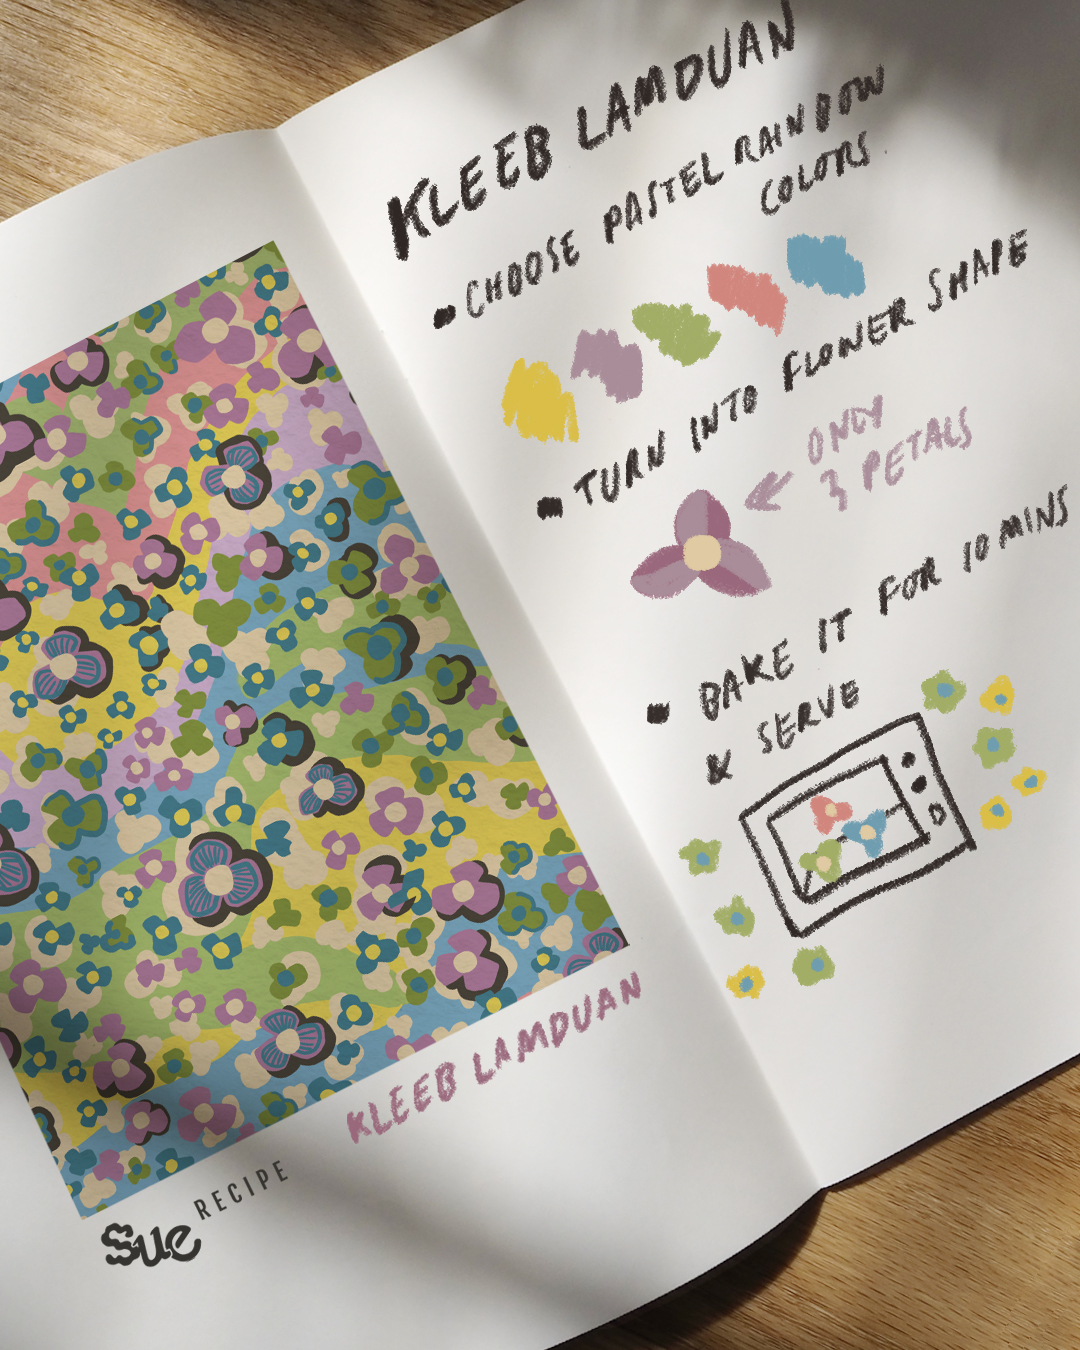 KLEEB LAMDUAN
CHOOSE PASTEL RAINBOW
COLORS.
TURN INTO FLOWER SHAPE
ONLY
3 PETALS
BAKE IT FOR 10 MINS
& SERVE
KLEEB LAMDUAN
Sue RECIPE